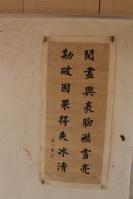 閱盡興衰胸襟雪亮
勘破因果得失冰清